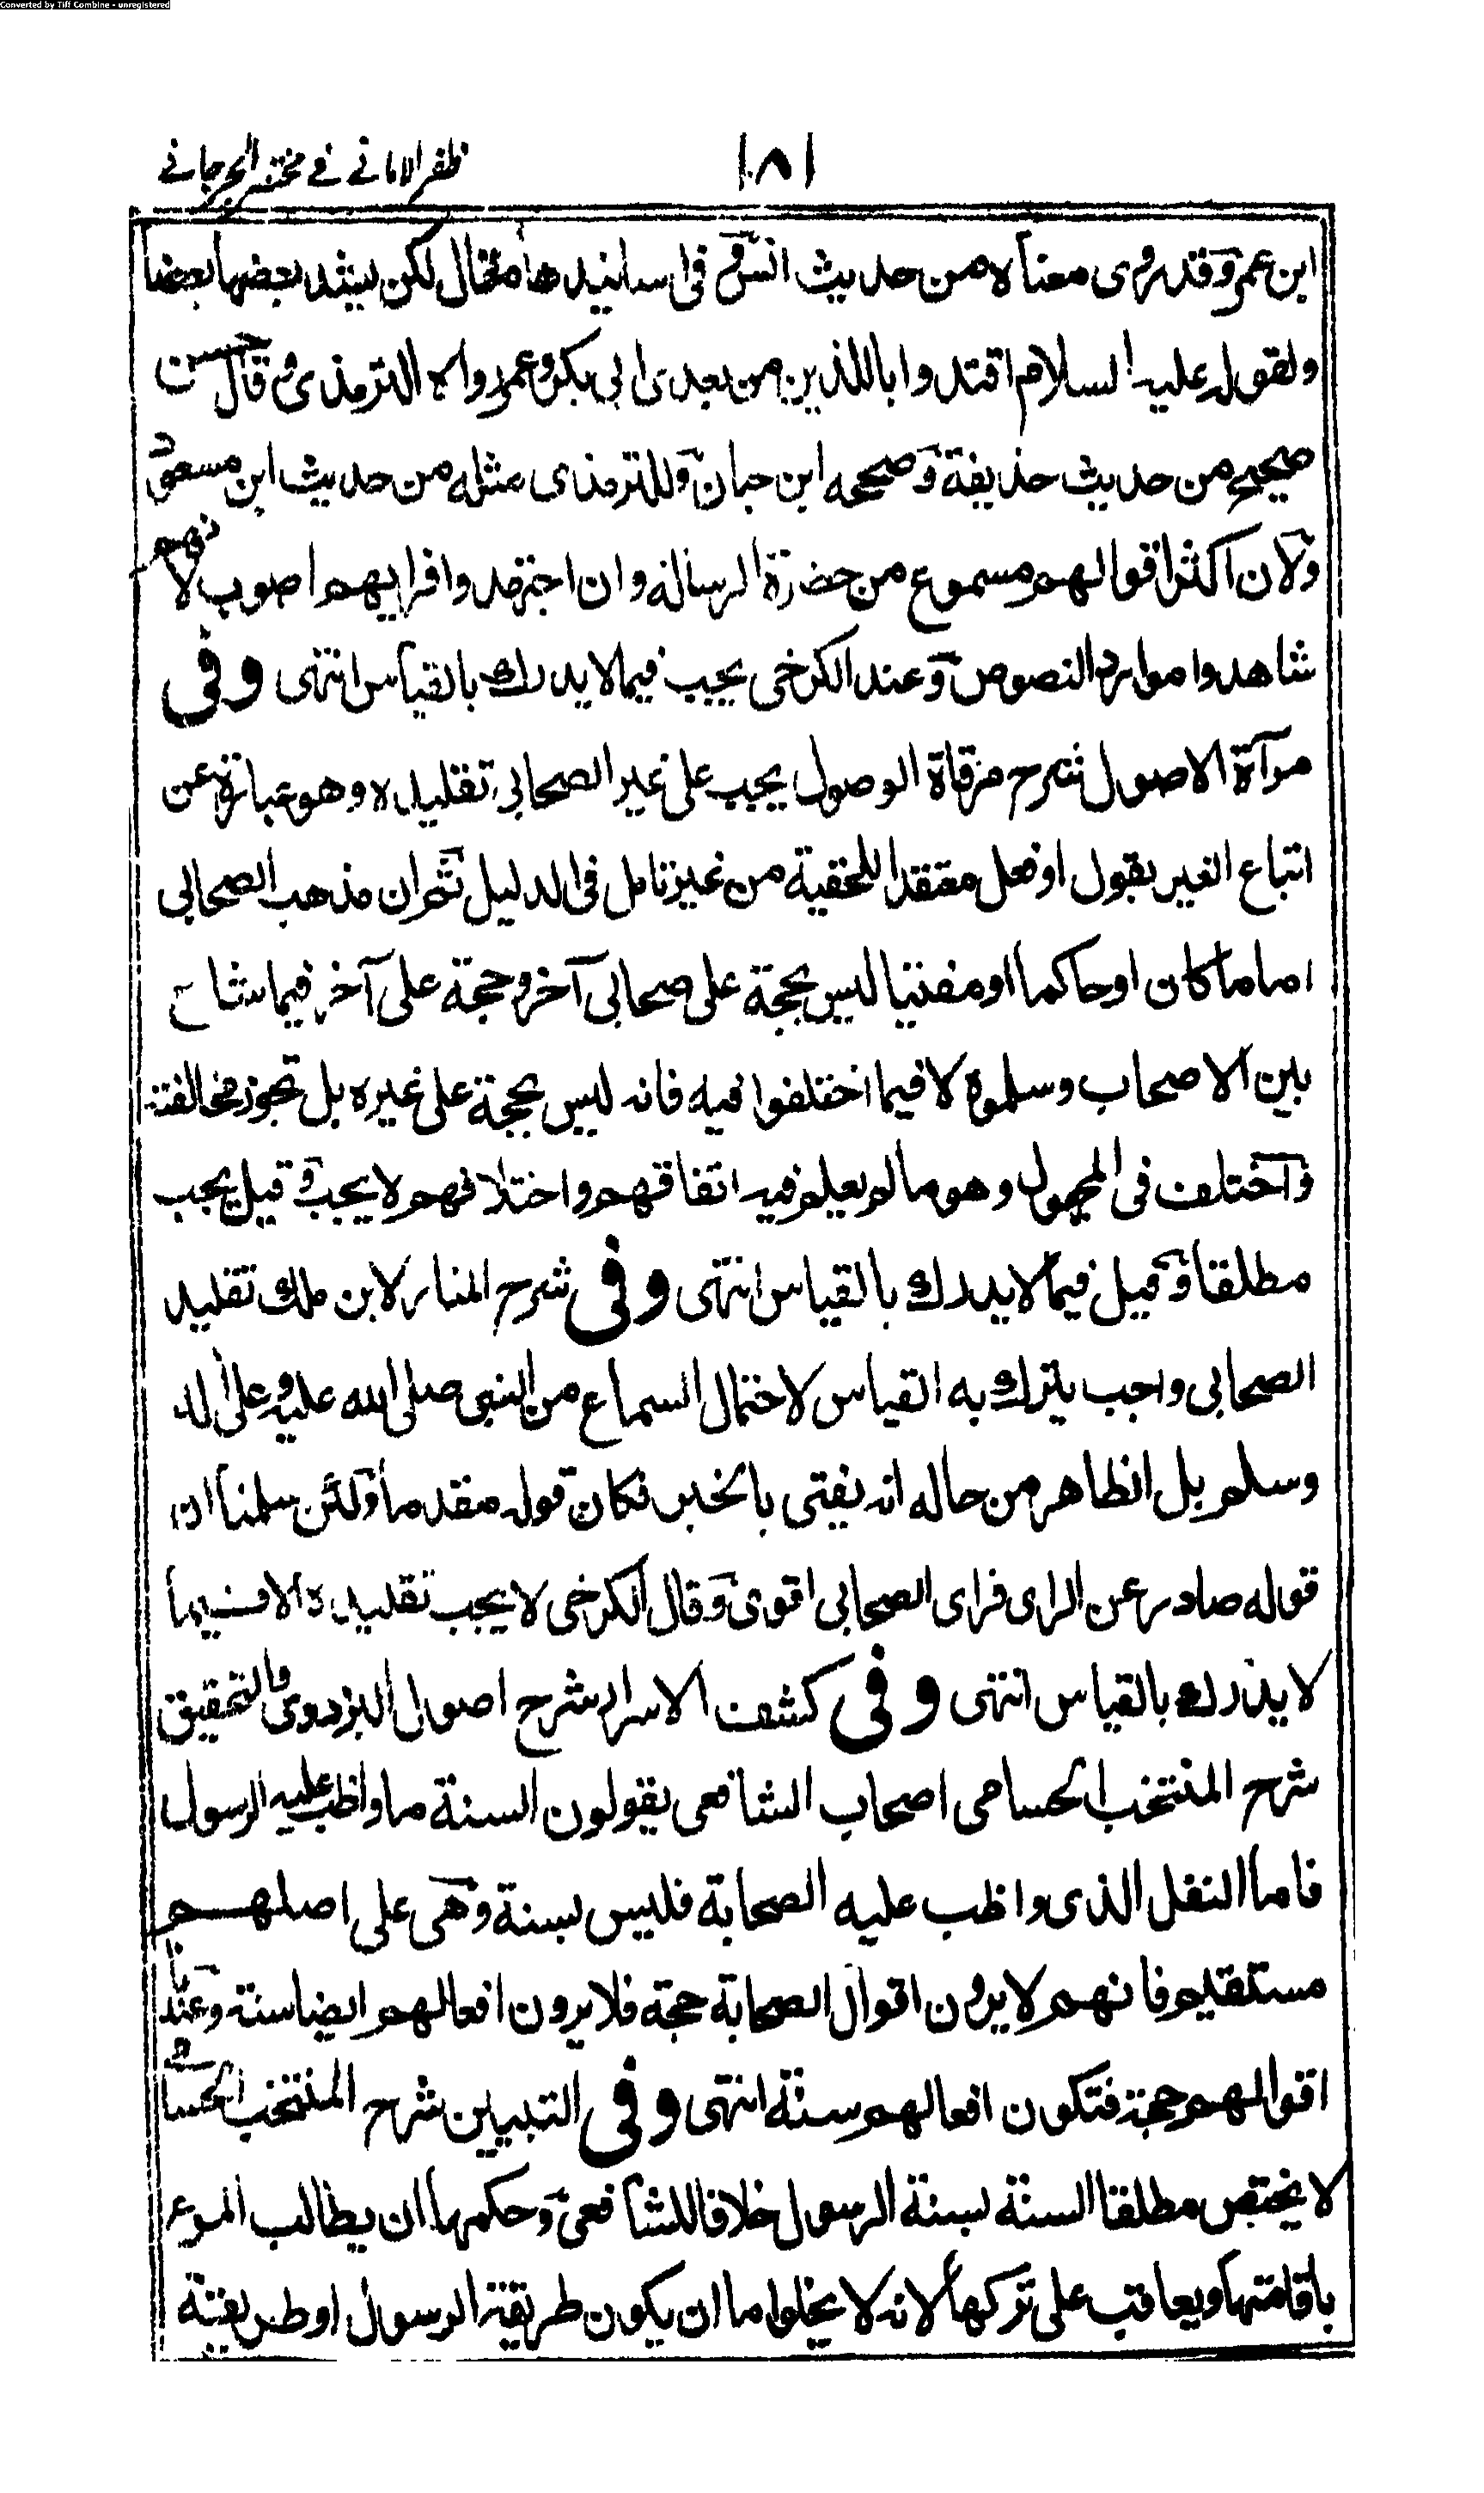 Converted by Tiff Combine - unregistered
١٨١
ظفر الامانی فی مختصر الجرجانی
ابن عمر وقد روی معناه من حدیث انس وفی اسانیدها مقال لکن یشد بعضها بعضا
ولقوله علیه السلام اقتدوا باللذین من بعدی ابی بکر وعمر رواه الترمذی وقال حسن
صحیح من حدیث حذیفة وصححه ابن حبان وللترمذی مثله من حدیث ابن مسعود
ولان اکثر اقوالهم مسموع من حضرة الرسالة وان اجتهدوا فرایهم اصوب لانهم
شاهدوا موارد النصوص وعند الکرخی یجب فیما لا یدرك بالقیاس انتهی وفی
مرآة الاصول شرح مرقاة الوصول یجب علی غیر الصحابی تقلیده وهو عبارة عن
اتباع الغیر بقول او فعل معتقدا للحقیة من غیر تامل فی الدلیل ثم ان مذهب الصحابی
اماما کان او حاکما او مفتیا لیس بحجة علی صحابی آخر وحجة علی آخر فیما شاع
بین الاصحاب وسلموه لا فیما اختلفوا فیه فانه لیس بحجة علی غیره بل تجوز مخالفته
واختلف فی المجهول وهو ما لم یعلم فیه اتفاقهم واختلافهم لا یجب وقیل یجب
مطلقا وقیل فیما لا یدرك بالقیاس انتهی وفی شرح المنار لابن ملك تقلید
الصحابی واجب یترك به القیاس لاحتمال السماع من النبی صلی الله علیه وعلی اله
وسلم بل الظاهر من حاله انه یفتی بالخبر فکان قوله مقدما ولئن سلمنا ان
قوله صادر عن الرای فرای الصحابی اقوی وقال الکرخی لا یجب تقلیده الا فیما
لا یدرك بالقیاس انتهی وفی کشف الاسرار شرح اصول البزدوی والتحقیق
شرح المنتخب الحسامی اصحاب الشافعی یقولون السنة ما واظب علیه الرسول
فاما النفل الذی واظب علیه الصحابة فلیس بسنة وهی علی اصلهم
مستقیم فانهم لا یرون اقوال الصحابة حجة فلا یرون افعالهم ایضا سنة وعندنا
اقوالهم حجة فتکون افعالهم سنة انتهی وفی التبیین شرح المنتخب الحسامی
لا یختص مطلقا السنة بسنة الرسول خلافا للشافعی وحکمها ان یطالب المرء
باقامتها ویعاقب علی ترکها لانه لا یخلو اما ان یکون طریقة الرسول او طریقة